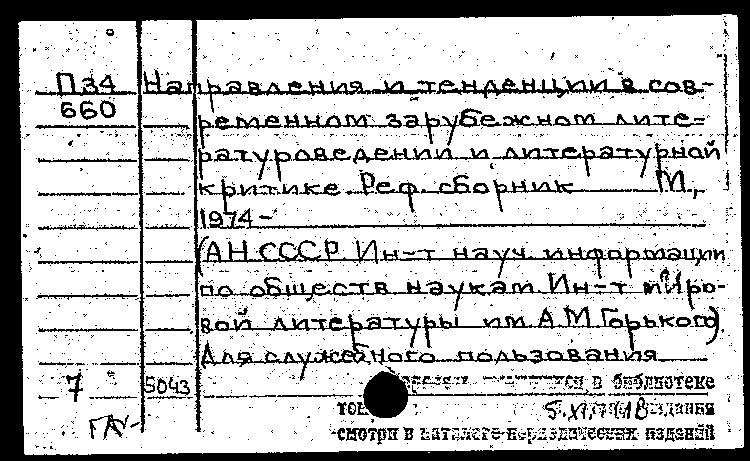 П34 Направления и тенденции в сов-
660 ременном зарубежном лите-
ратуроведении и литературной
критике. Реф. сборник М.,
1974-
(АН СССР. Ин-т науч. информации
по обществ наукам Ин-т миро-
вой литературы им А.М.Горького)
Для служебного пользования
7 5043
в библиотеке
издания
смотри в каталоге периодических изданий